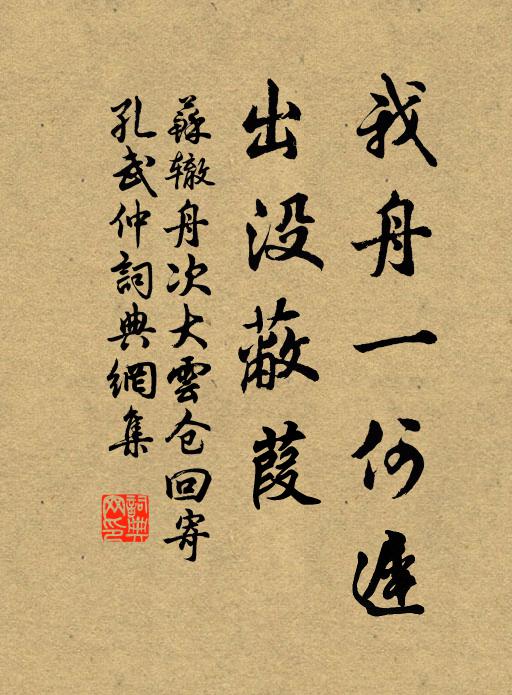 我舟一何遲
出没蔽葭
蘇辙舟次大雲仓回寄
孔武仲詞典網集
詞典
网印